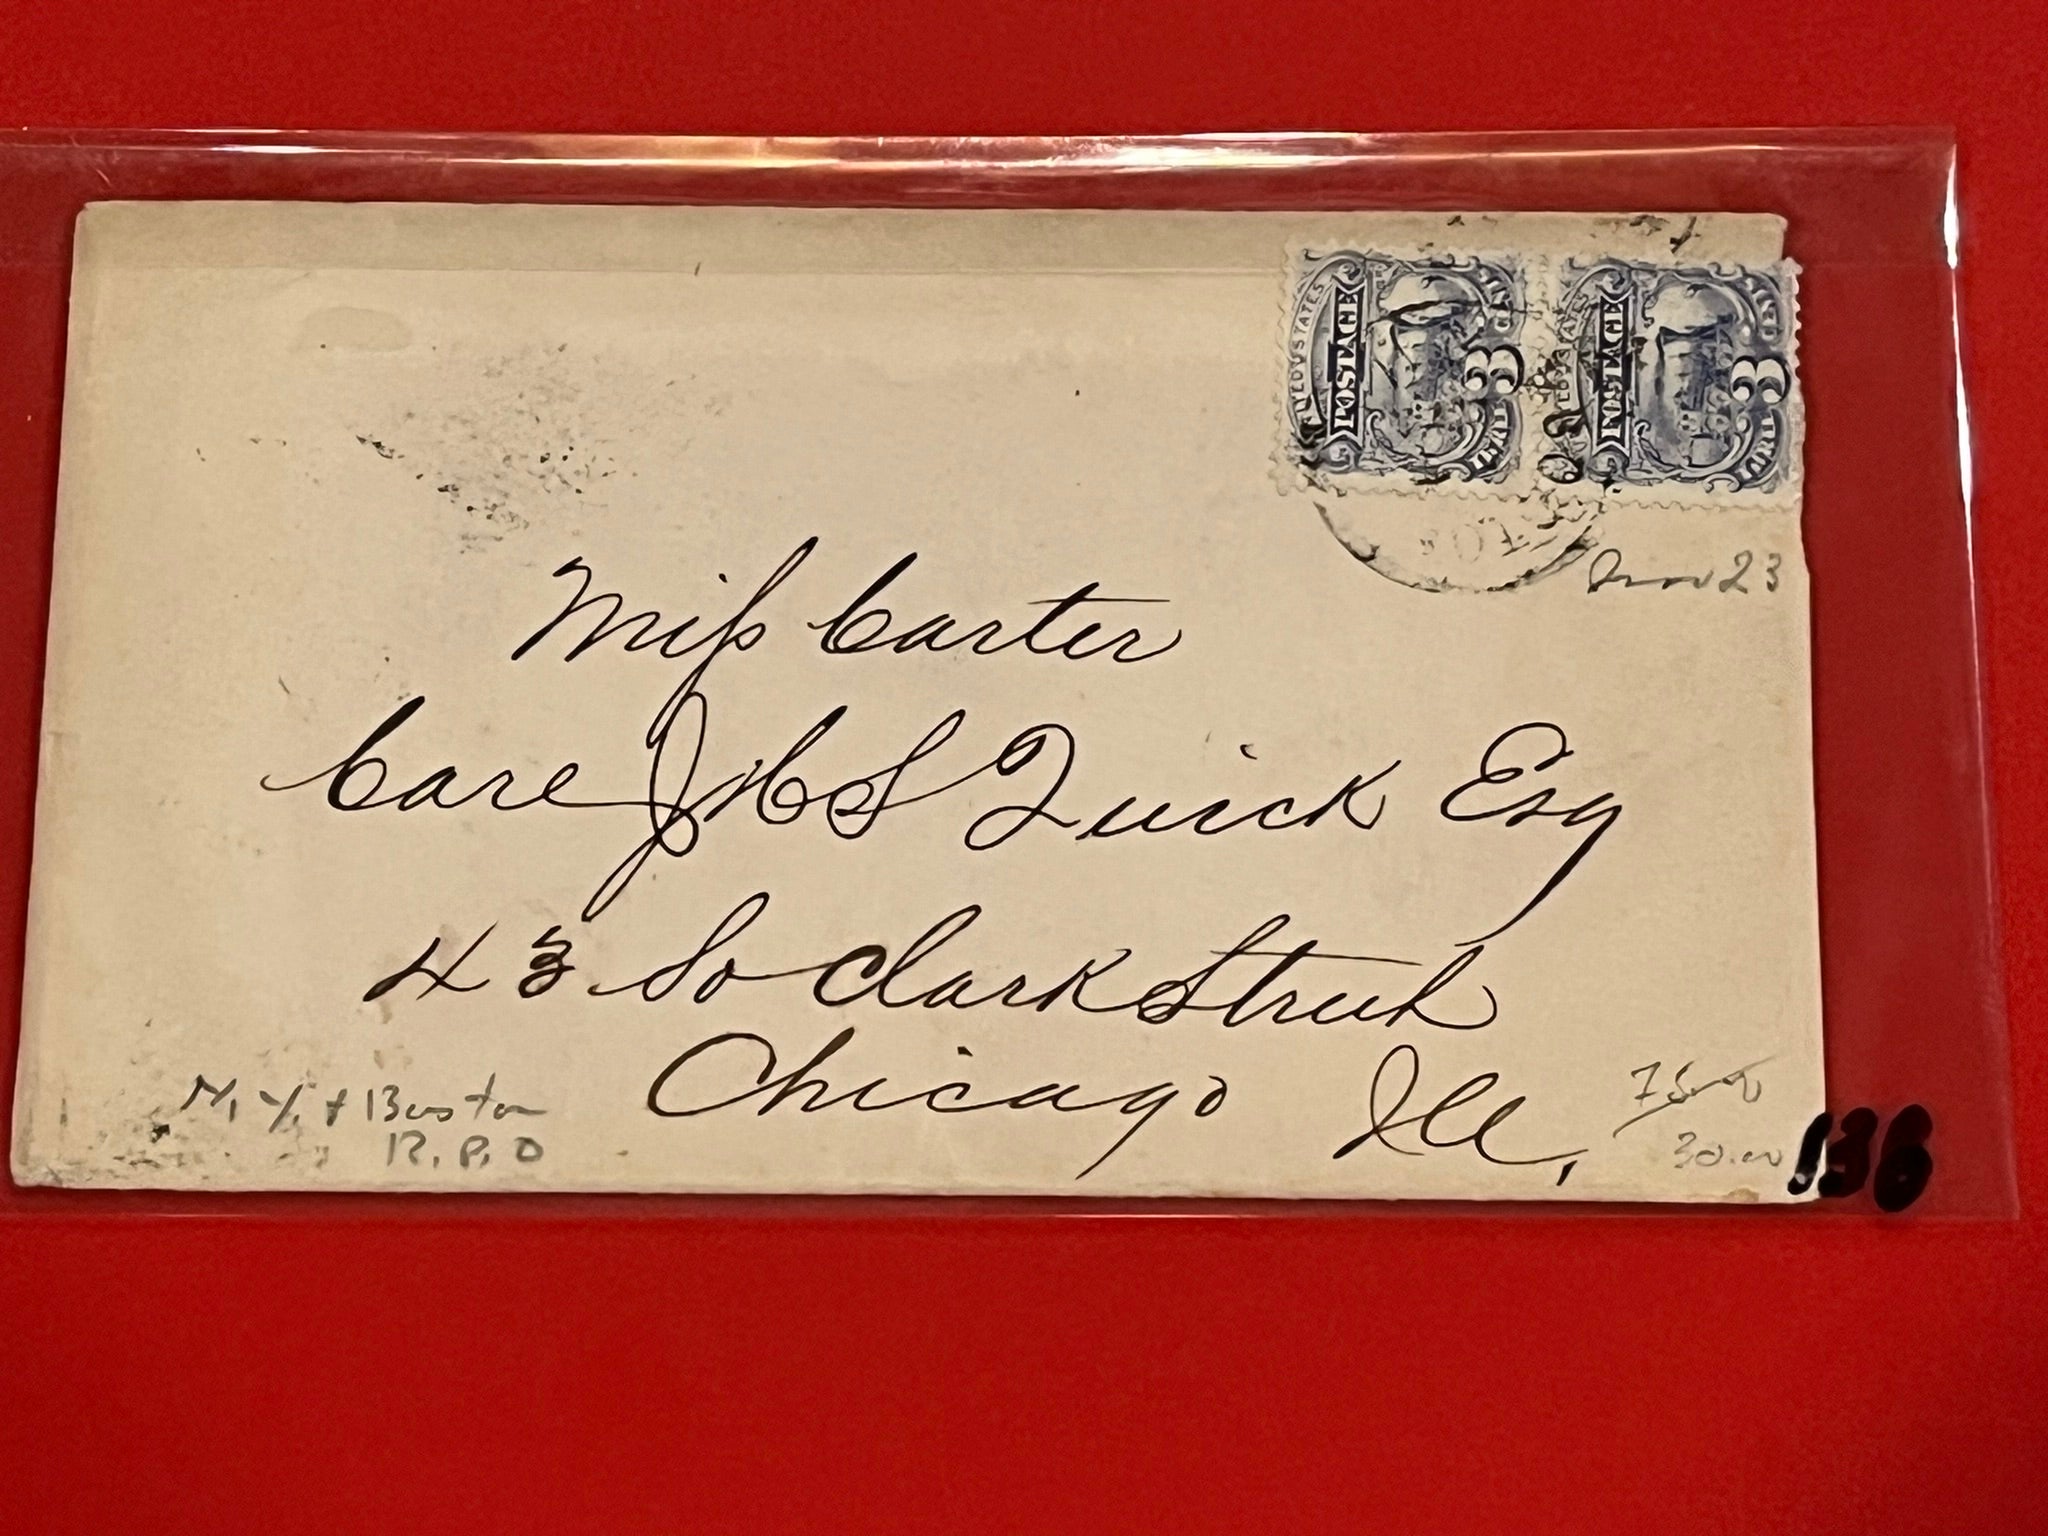 UNITED STATES POSTAGE 3 THREE CENTS
UNITED STATES POSTAGE 3 THREE CENTS
23
Miss Carter
Care J H C S Quick Esq
43 So Clark Street
Chicago Ill,
N. Y. + Boston
R. P. O
75.00
30.00
136